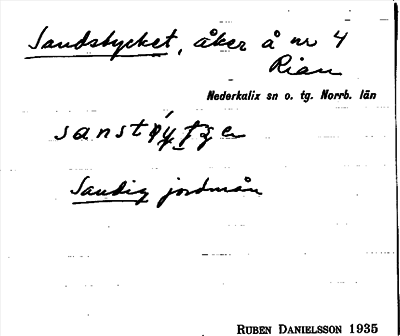 Sandstycket, åker å nr 4
Rian
Nederkalix sn o. tg. Norrb. län
Sandig jordmån
RUBEN DANIELSSON 1935